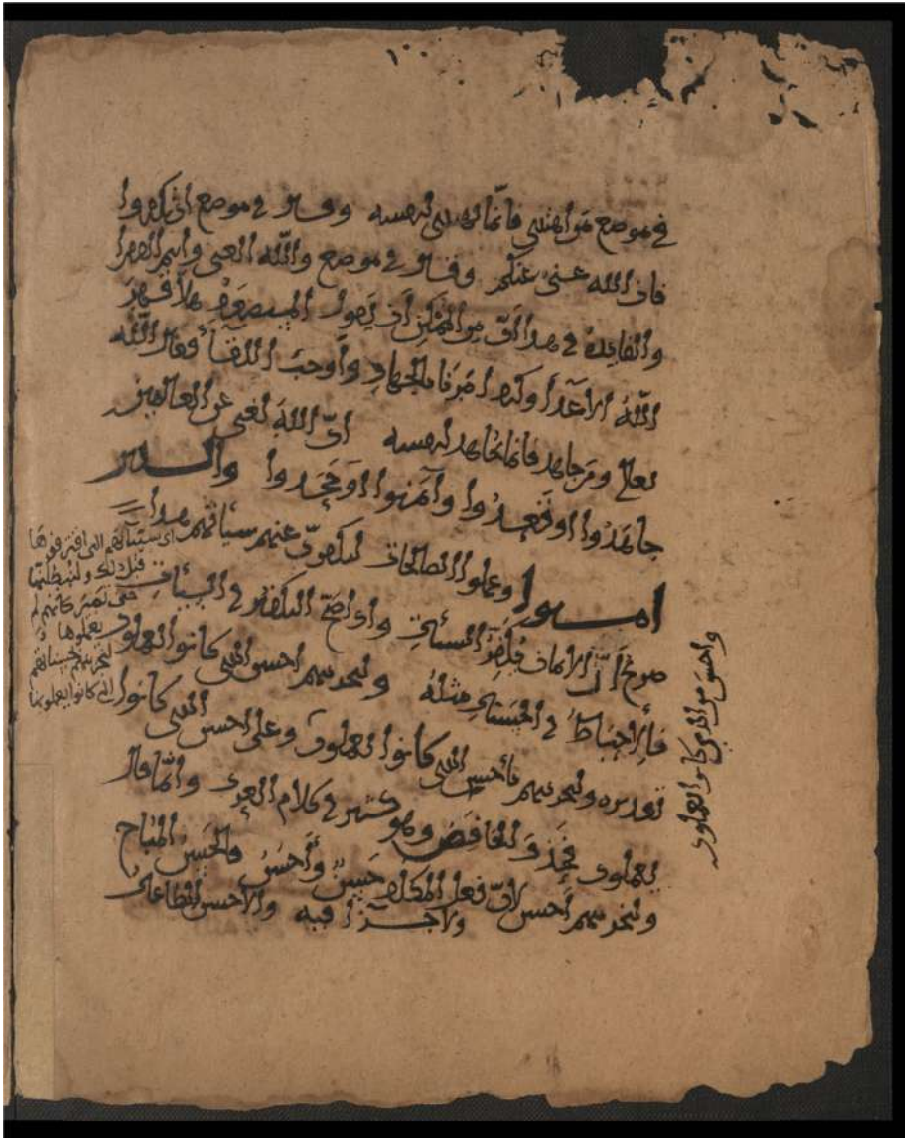 في موضع من اهتدى فانما يهتدي لنفسه وقال في موضع ان تكفروا
فان الله غني عنكم وقال في موضع والله الغني وانتم الفقرا
والفايدة في هذا انّ من الممكن أن يقول المستضعف هلّا قهر
الله الاعدا وكفا ضرنا بالجهاد وأوجب اللقاء فقال الله
تعالى ومن جاهد فانما يجاهد لنفسه انّ الله لغني عن العالمين
جاهدوا او قعدوا وآمنوا او جحدوا والذين
امنوا وعملوا الصالحات لنكفرن عنهم سيئاتهم هذا
صرح أنّ الايمان يكفر السيئات واوضح التكفير في السيئات
فالإحباط في الحسنات مثله ولنجزينهم احسن الذي كانوا يعملون
تقديره ولنجزينهم بأحسن الذي كانوا يعملون وعلى احسن الذي كانوا
يعملون فحذف الخافض وهو كثير في كلام العرب وانما قال
ولنجزينهم احسن لانّ فعل المكلف حسن وأحسن فالحسن المباح
ولا جزا فيه والأحسن الطاعات
اي سيئاتهم التي اقترفوها
قبل ذلك ولنبطلنها
حتى تصير كانهم لم
يعملوها
لنجزينهم حسناتهم
التي كانوا يعملونها
واحسن من الذي كانوا يعملون